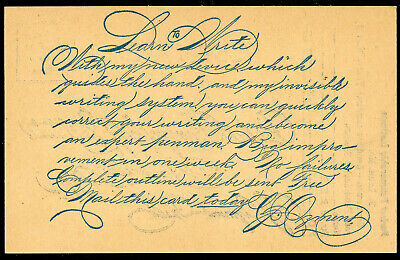 Learn To Write
With my new device which
guides the hand, and my invisible
writing system, you can quickly
correct your writing and become
an expert penman. Big impro-
vement in one week. No failures
Complete outline will be sent Free
Mail this card today. Ozment